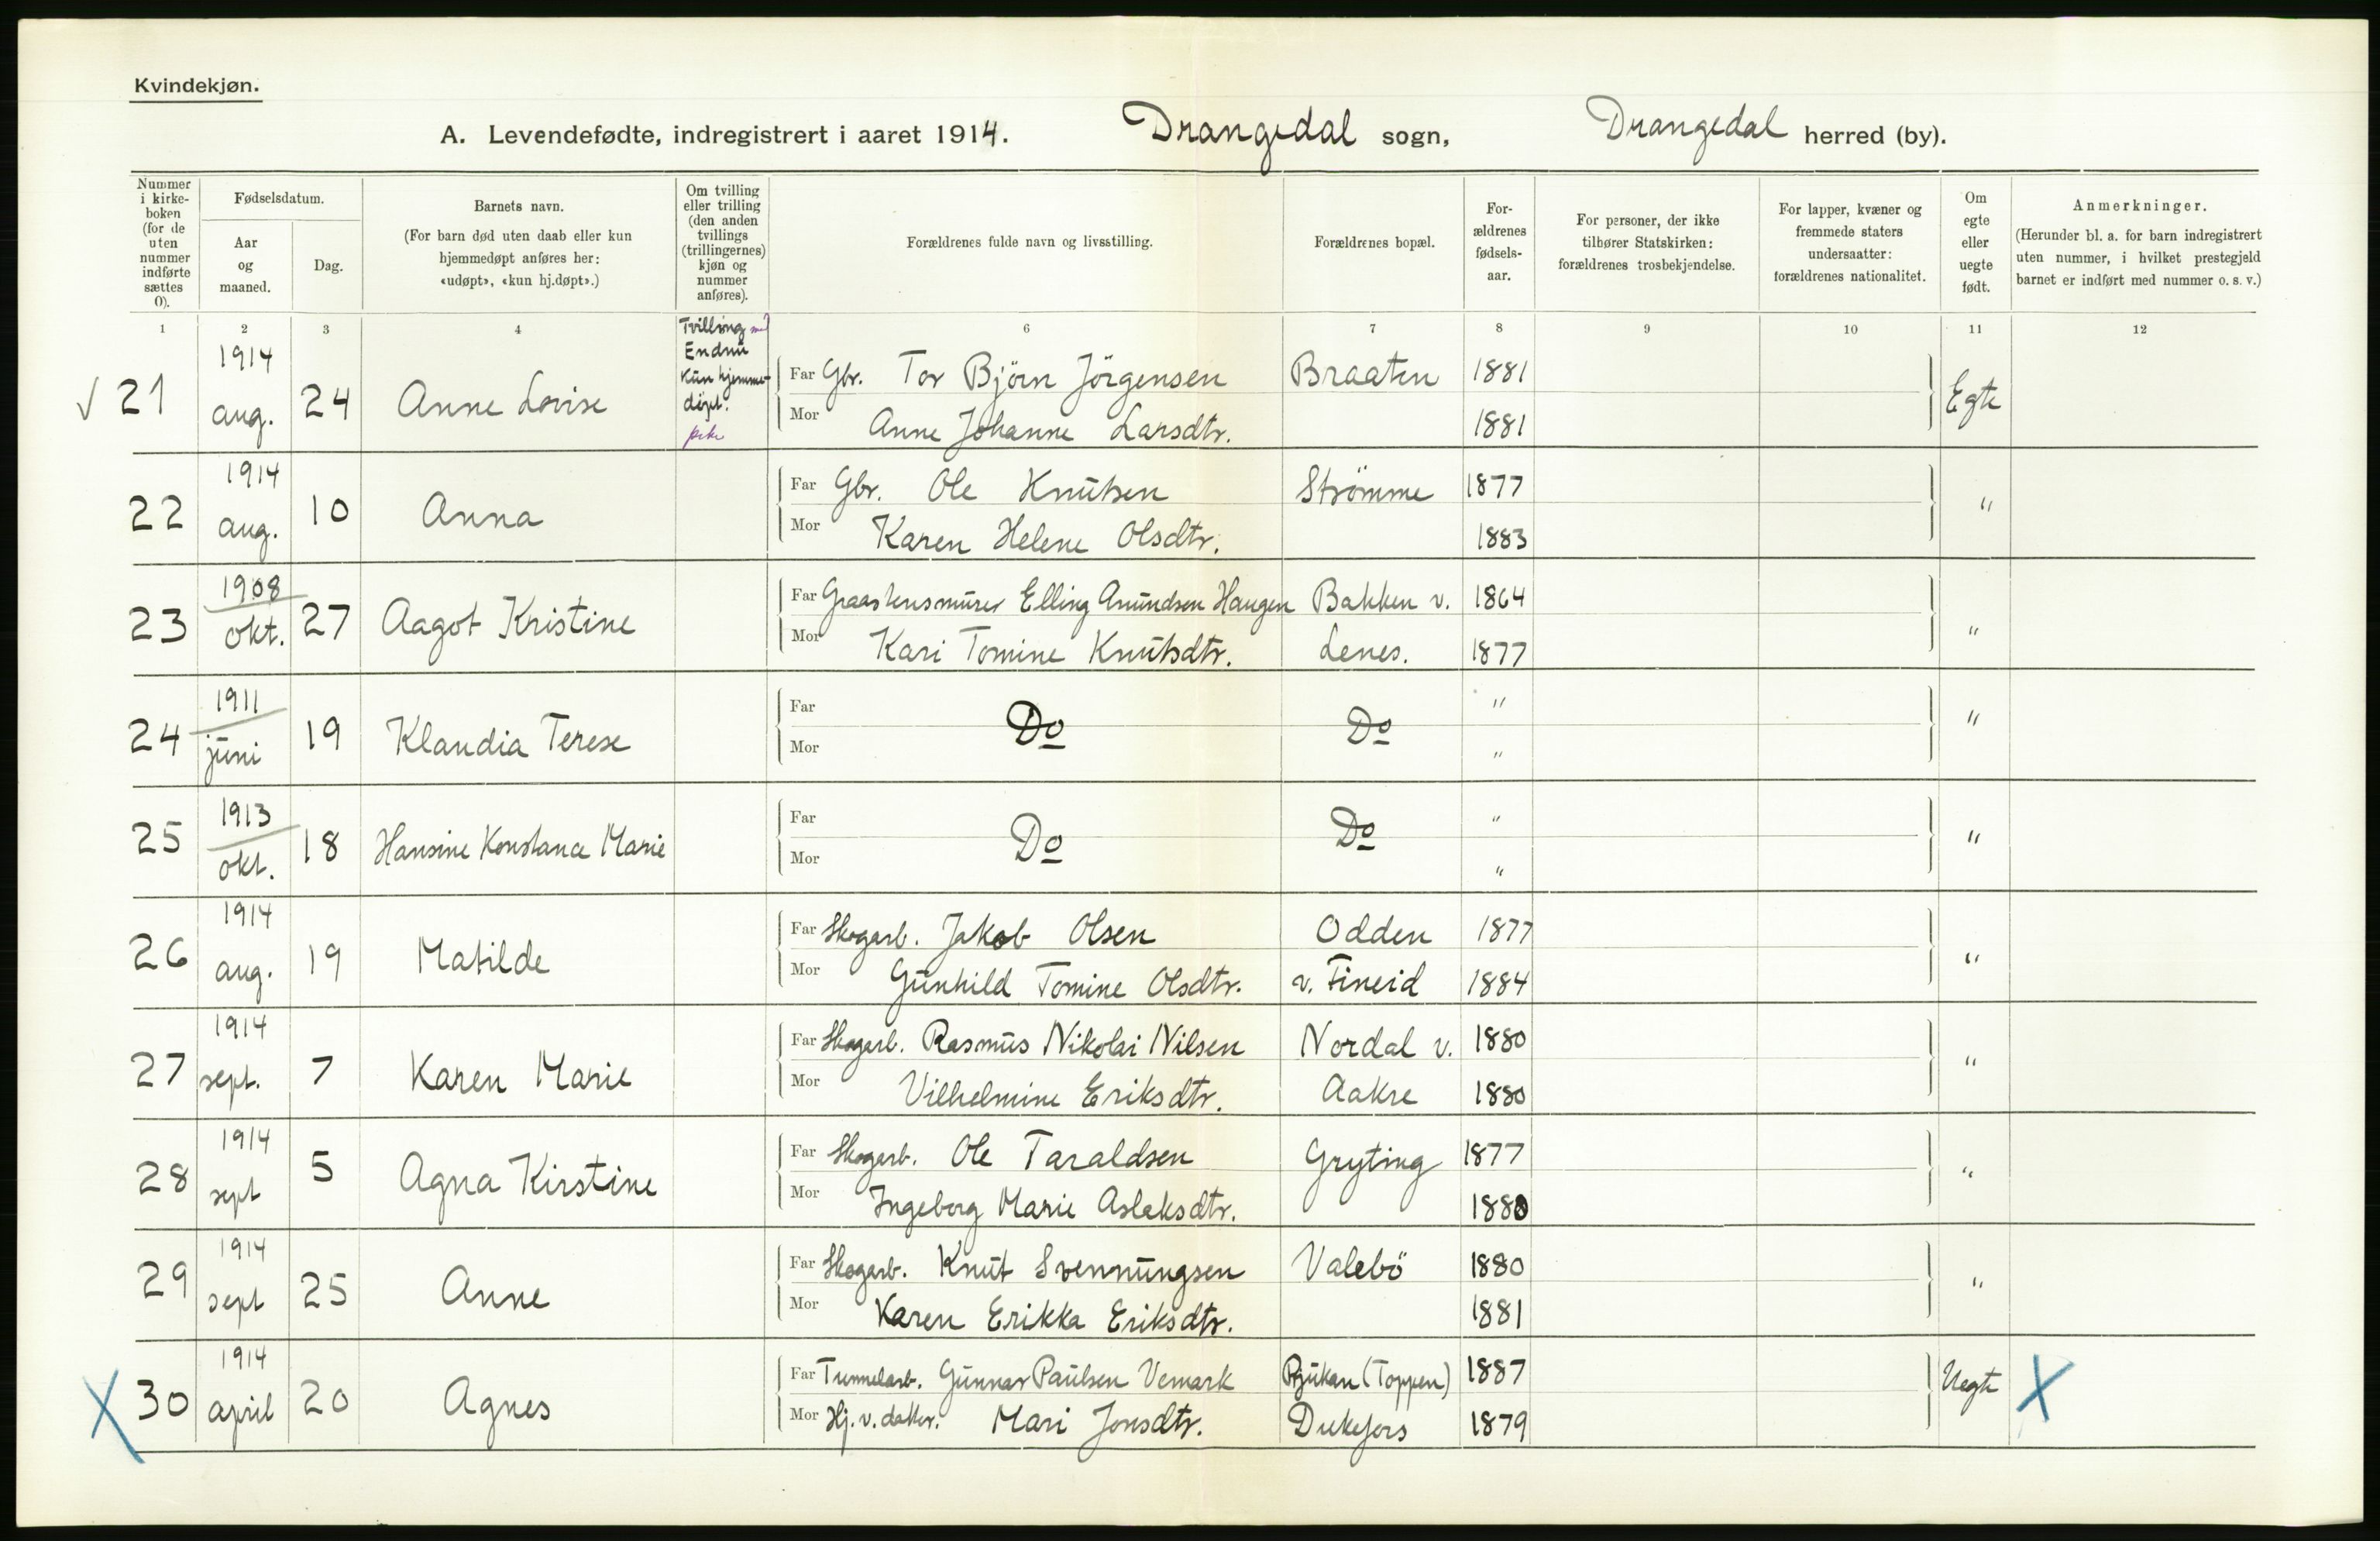 Kvindekjøn.
A. Levendefødte, indregistrert i aaret 1914. Drangedal sogn, Drangedal herred (by).
Nummer i kirke-boken (for de uten nummer indførte sættes 0).
Fødselsdatum.
Aar og maaned.
Dag.
Barnets navn.
(For barn død uten daab eller kun hjemmedøpt anføres her: «udøpt», «kun hj.døpt».)
Om tvilling eller trilling (den anden tvillings (trillingernes) kjøn og nummer anføres).
Forældrenes fulde navn og livsstilling.
Forældrenes bopæl.
For-ældrenes fødsels-aar.
For personer, der ikke tilhører Statskirken: forældrenes trosbekjendelse.
For lapper, kvæner og fremmede staters undersaatter: forældrenes nationalitet.
Om egte eller uegte født.
Anmerkninger.
(Herunder bl. a. for barn indregistrert uten nummer, i hvilket prestegjeld barnet er indført med nummer o. s. v.)
1 2 3 4 6 7 8 9 10 11 12
√ 21 1914 aug. 24 Anne Lovise Tvilling med Endnu kun hjemme-døpt. pike
Far Gbr. Tor Björn Jörgensen Braaten 1881 Egte
Mor Anne Johanne Larsdtr. 1881
22 1914 aug. 10 Anna
Far Gbr. Ole Knutsen Strömme 1877 "
Mor Karen Helene Olsdtr. 1883
23 1908 okt. 27 Aagot Kristine
Far Graastensmurer Elling Amundsen Haugen Bakken v. 1864 "
Mor Kari Tomine Knutsdtr. Lenes. 1877
24 1911 juni 19 Klaudia Terese
Far Do Do " "
Mor "
25 1913 okt. 18 Hansine Konstance Marie
Far Do Do " "
Mor "
26 1914 aug. 19 Matilde
Far Skogarb. Jakob Olsen Odden 1877 "
Mor Gunhild Tomine Olsdtr. v. Fineid 1884
27 1914 sept. 7 Karen Marie
Far Skogarb. Rasmus Nikolai Nilsen Nordal v. 1880 "
Mor Vilhelmine Eriksdtr. Aakre 1880
28 1914 sept 5 Agna Kirstine
Far Skogarb. Ole Taraldsen Gryting 1877 "
Mor Ingeborg Marie Aslaksdtr. 1880
29 1914 sept 25 Anne
Far Skogarb. Knut Svennungsen Valebö 1880 "
Mor Karen Erikka Eriksdtr. 1881
X 30 1914 april 20 Agnes
Far Tunnelarb. Gunnar Paulsen Vemark Rjukan (Toppen) 1887 Uegte X
Mor Hj. v. datter. Mari Jonsdtr. 1879